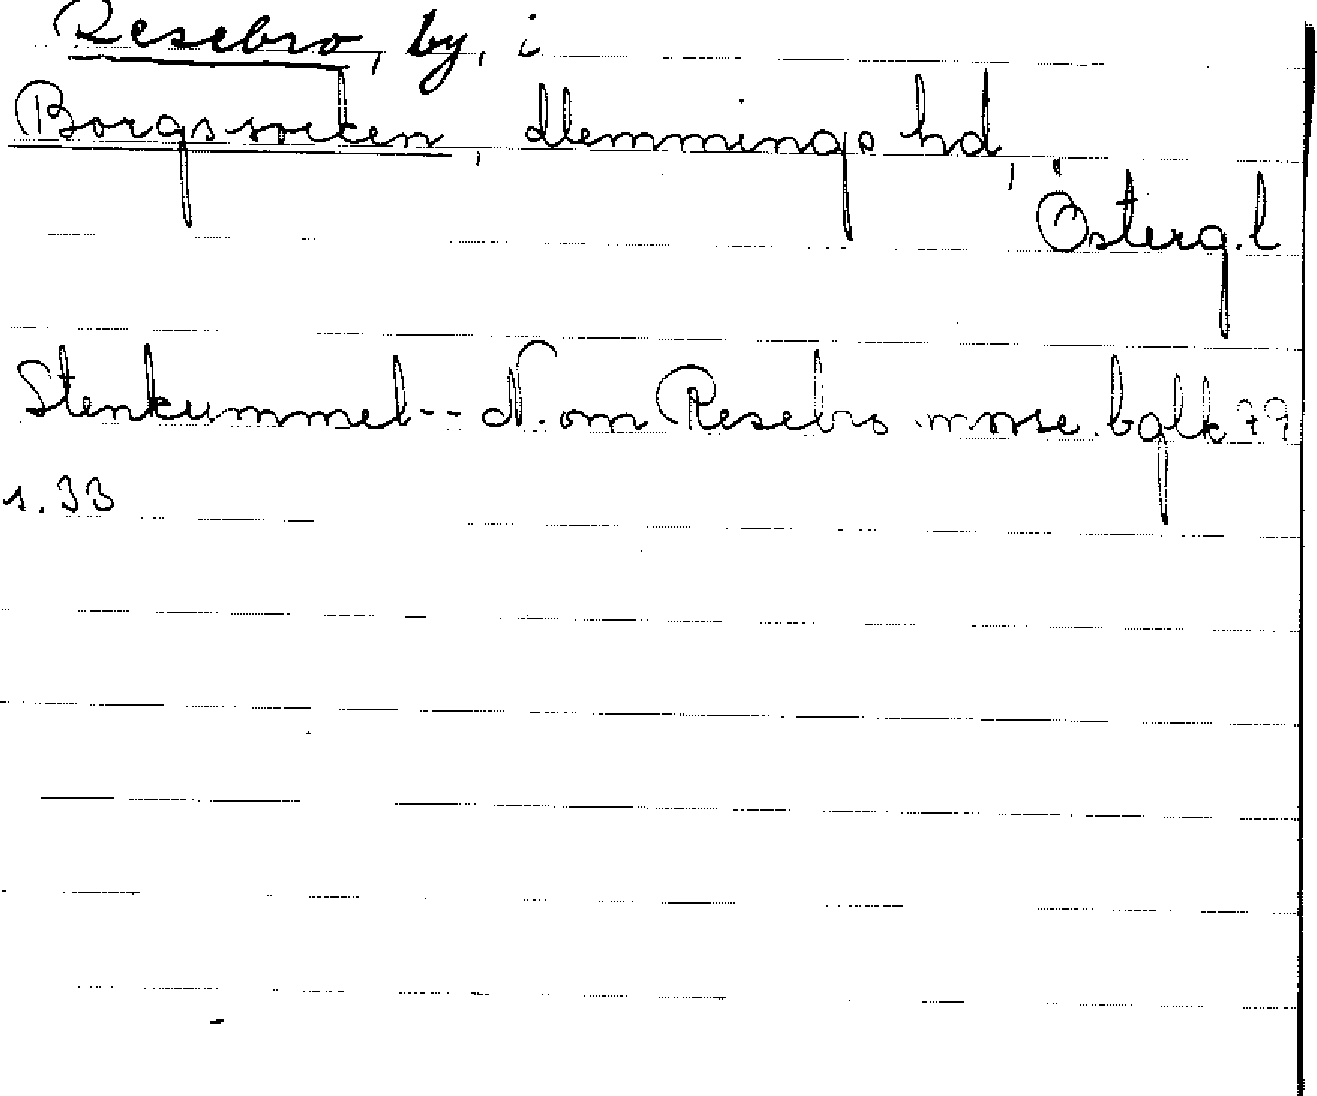 Resebro, by, i
Borgs socken, Memmings hd,
Österg. l
Stenkummel -- N. om Resebro mosse. bglk 77
s. 33